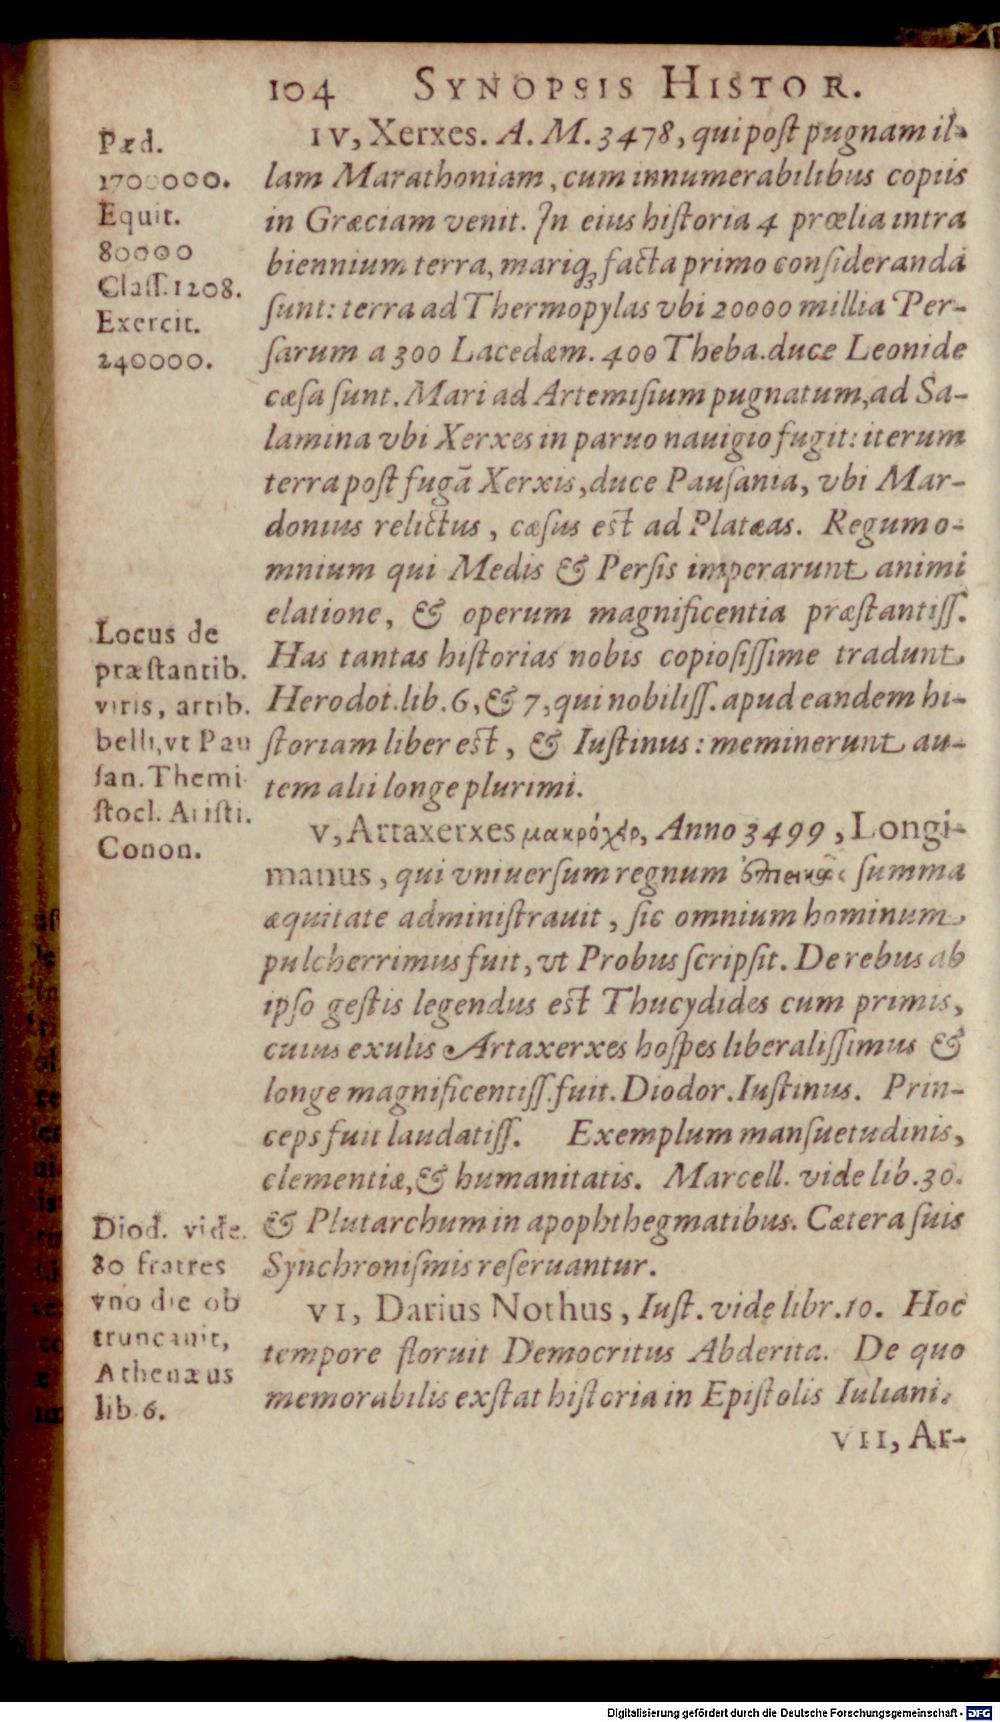 104 SYNOPSIS HISTOR.
IV, Xerxes. A. M. 3478, qui post pugnam il-
lam Marathoniam, cum innumerabilibus copiis
in Græciam venit. In eius historia 4 prœlia intra
biennium terra, mariq; facta primo consideranda
sunt: terra ad Thermopylas vbi 20000 millia Per-
sarum a 300 Lacedæm. 400 Theba. duce Leonide
cæsa sunt. Mari ad Artemisium pugnatum, ad Sa-
lamina vbi Xerxes in paruo nauigio fugit: iterum
terra post fugā Xerxis, duce Pausania, vbi Mar-
donius relictus, cæsus est ad Platæas. Regum o-
mnium qui Medis & Persis imperarunt animi
elatione, & operum magnificentia præstantiss.
Has tantas historias nobis copiosissime tradunt
Herodot. lib. 6, & 7, qui nobiliss. apud eandem hi-
storiam liber est, & Iustinus: meminerunt au-
tem alii longe plurimi.
V, Artaxerxes μακρόχειρ, Anno 3499, Longi-
manus, qui vniuersum regnum summa
æquitate administrauit, sic omnium hominum
pulcherrimus fuit, vt Probus scripsit. De rebus ab
ipso gestis legendus est Thucydides cum primis,
cuius exulis Artaxerxes hospes liberalissimus &
longe magnificentiss. fuit. Diodor. Iustinus. Prin-
ceps fuit laudatiss. Exemplum mansuetudinis,
clementiæ, & humanitatis. Marcell. vide lib. 30.
& Plutarchum in apophthegmatibus. Cætera suis
Synchronismis reseruantur.
VI, Darius Nothus, Iust. vide libr. 10. Hoc
tempore floruit Democritus Abderita. De quo
memorabilis exstat historia in Epistolis Iuliani.
VII, Ar-
Pæd.
1700000.
Equit.
80000
Class. 1208.
Exercit.
240000.
Locus de
præstantib.
viris, artib.
belli, vt Pau
san. Themi
stocl. Aristi.
Conon.
Diod. vide.
80 fratres
vno die ob
truncauit,
Athenæus
lib. 6.
Digitalisierung gefördert durch die Deutsche Forschungsgemeinschaft - DFG